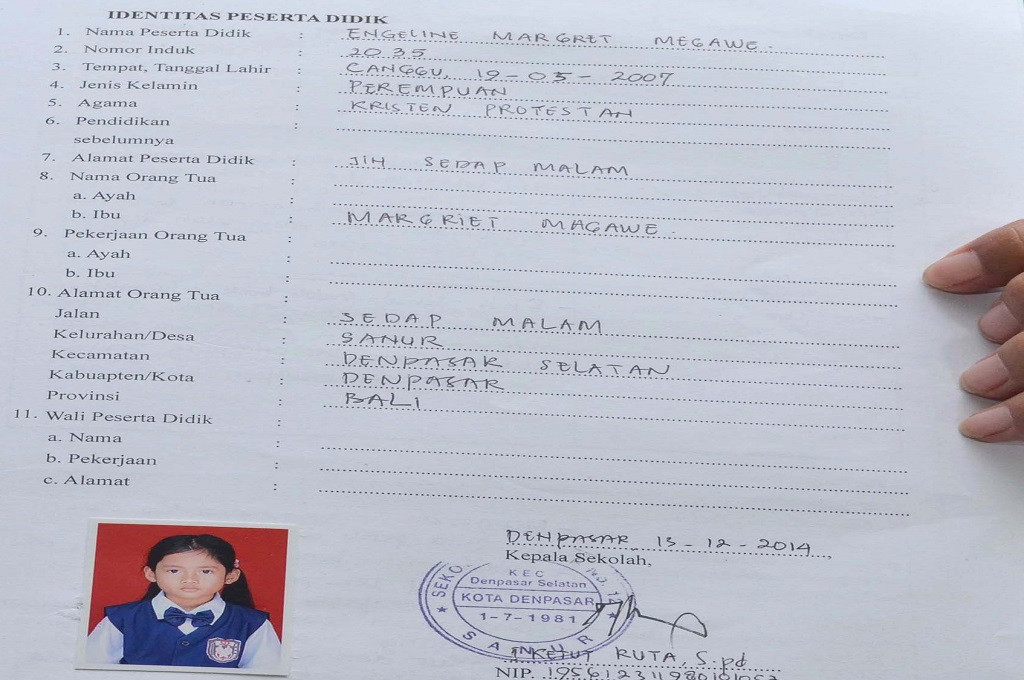 IDENTITAS PESERTA DIDIK
1. Nama Peserta Didik : ENGELINE MARGRET MEGAWE.
2. Nomor Induk : 2035
3. Tempat, Tanggal Lahir : CANGGU, 19-05-2007
4. Jenis Kelamin : PEREMPUAN
5. Agama : KRISTEN PROTESTAN
6. Pendidikan :
sebelumnya
7. Alamat Peserta Didik : JlH SEDAP MALAM
8. Nama Orang Tua :
a. Ayah :
b. Ibu : MARGRIET MAGAWE.
9. Pekerjaan Orang Tua :
a. Ayah :
b. Ibu :
10. Alamat Orang Tua :
Jalan : SEDAP MALAM
Kelurahan/Desa : SANUR
Kecamatan : DENPASAR SELATAN
Kabuapten/Kota : DENPASAR
Provinsi : BALI
11. Wali Peserta Didik :
a. Nama :
b. Pekerjaan :
c. Alamat :
DENPASAR, 13-12-2014,
Kepala Sekolah,
KEC
Denpasar Selatan
KOTA DENPASAR
1-7-1981
SANUR
KETUT RUTA, S.pd
NIP.